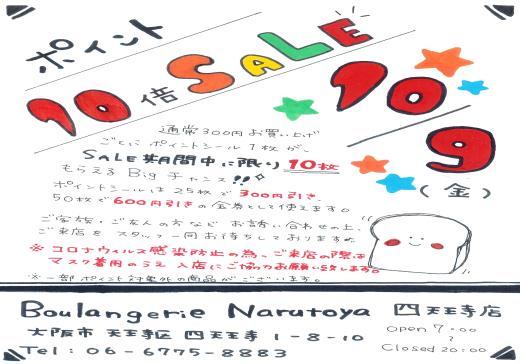 ポイント
10倍 SALE
10/9
(金)
通常300円お買い上げ
ごとにポイントシール1枚が、
SALE期間中に限り 10枚
もらえる Big チャンス!!
ポイントシールは 25枚で 300円引き、
50枚で 600円引きの金券として使えます。
ご家族・ご友人の方など お誘い合わせの上、
ご来店を スタッフ一同お待ちしております
※コロナウィルス感染防止の為、ご来店の際は
マスク着用のうえ 入店にご協力お願い致します。
※一部ポイント対象外の商品がございます。
Boulangerie Narutoya 四天王寺店
大阪市 天王寺区 四天王寺 1-8-10
Open 7:00
~
Closed 20:00
Tel : 06-6775-8883